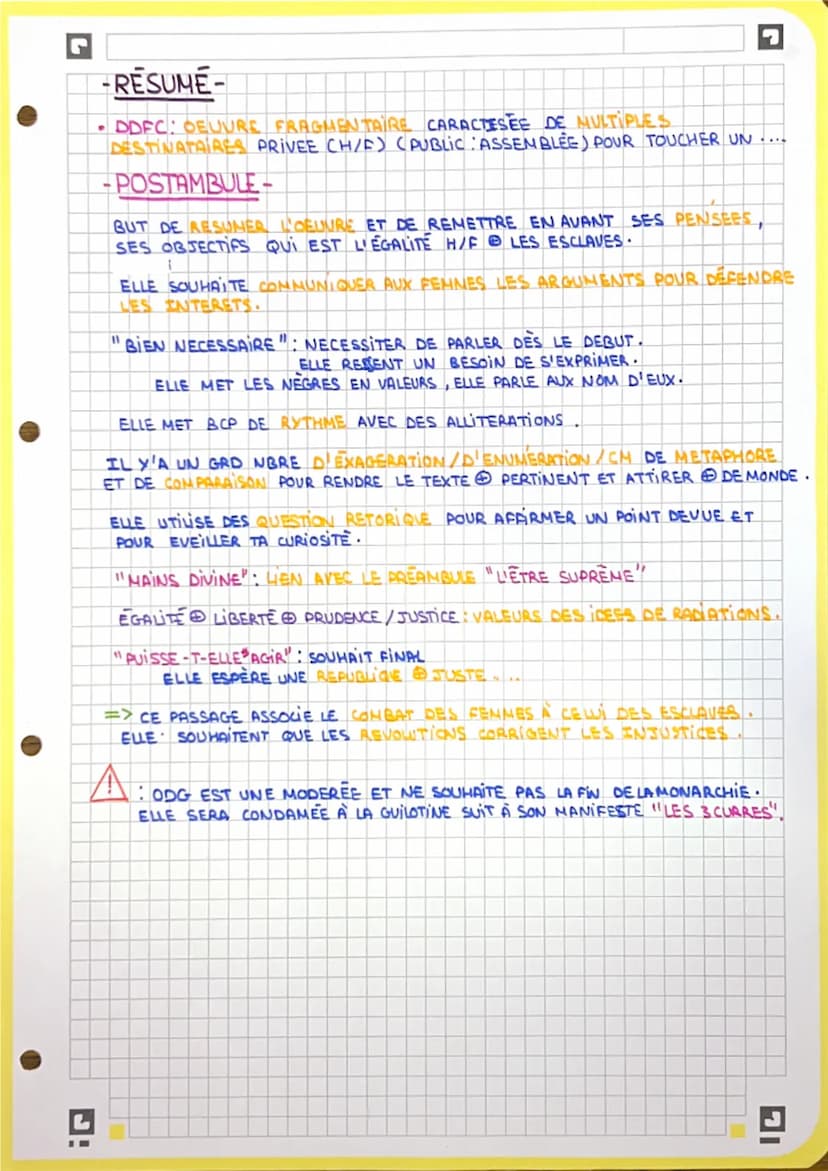 -RÉSUMÉ-
• DDFC: OEUVRE FRAGMENTAIRE CARACTESÉE DE MULTIPLES
DESTINATAIRES PRIVEE (H/F) (PUBLIC: ASSEMBLÉE) POUR TOUCHER UN ....
-POSTAMBULE-
BUT DE RESUMER L'OEUVRE ET DE REMETTRE EN AVANT SES PENSEES,
SES OBJECTIFS QUI EST L'ÉGALITÉ H/F ⊕ LES ESCLAVES.
ELLE SOUHAITE COMMUNIQUER AUX FEMMES LES ARGUMENTS POUR DÉFENDRE
LES INTERETS.
"BIEN NECESSAIRE": NECESSITER DE PARLER DÈS LE DEBUT.
ELLE RESSENT UN BESOIN DE S'EXPRIMER.
ELLE MET LES NÈGRES EN VALEURS, ELLE PARLE AUX NOM D'EUX.
ELLE MET BCP DE RYTHME AVEC DES ALLITERATIONS.
IL Y'A UN GRD NBRE D'EXAGERATION/D'ENUMÉRATION/CM DE METAPHORE
ET DE COMPARAISON POUR RENDRE LE TEXTE ⊕ PERTINENT ET ATTIRER ⊕ DE MONDE.
ELLE UTILISE DES QUESTION RETORIQUE POUR AFFIRMER UN POINT DE VUE ET
POUR EVEILLER TA CURIOSITÉ.
"MAINS DIVINE": LIEN AVEC LE PRÉAMBULE "L'ÊTRE SUPRÈME"
ÉGALITÉ ⊕ LIBERTÉ ⊕ PRUDENCE/JUSTICE: VALEURS DES IDEES DE RADIATIONS.
"PUISSE-T-ELLE AGIR": SOUHAIT FINAL
ELLE ESPÈRE UNE REPUBLIQUE ⊕ JUSTE...
=> CE PASSAGE ASSOCIE LE COMBAT DES FEMMES À CELUI DES ESCLAVES.
ELLE SOUHAITENT QUE LES REVOLUTIONS CORRIGENT LES INJUSTICES.
! : ODG EST UNE MODERÉE ET NE SOUHAITE PAS LA FIN DE LA MONARCHIE.
ELLE SERA CONDAMÉE À LA GUILOTINE SUIT À SON MANIFESTE "LES 3 CURRES".